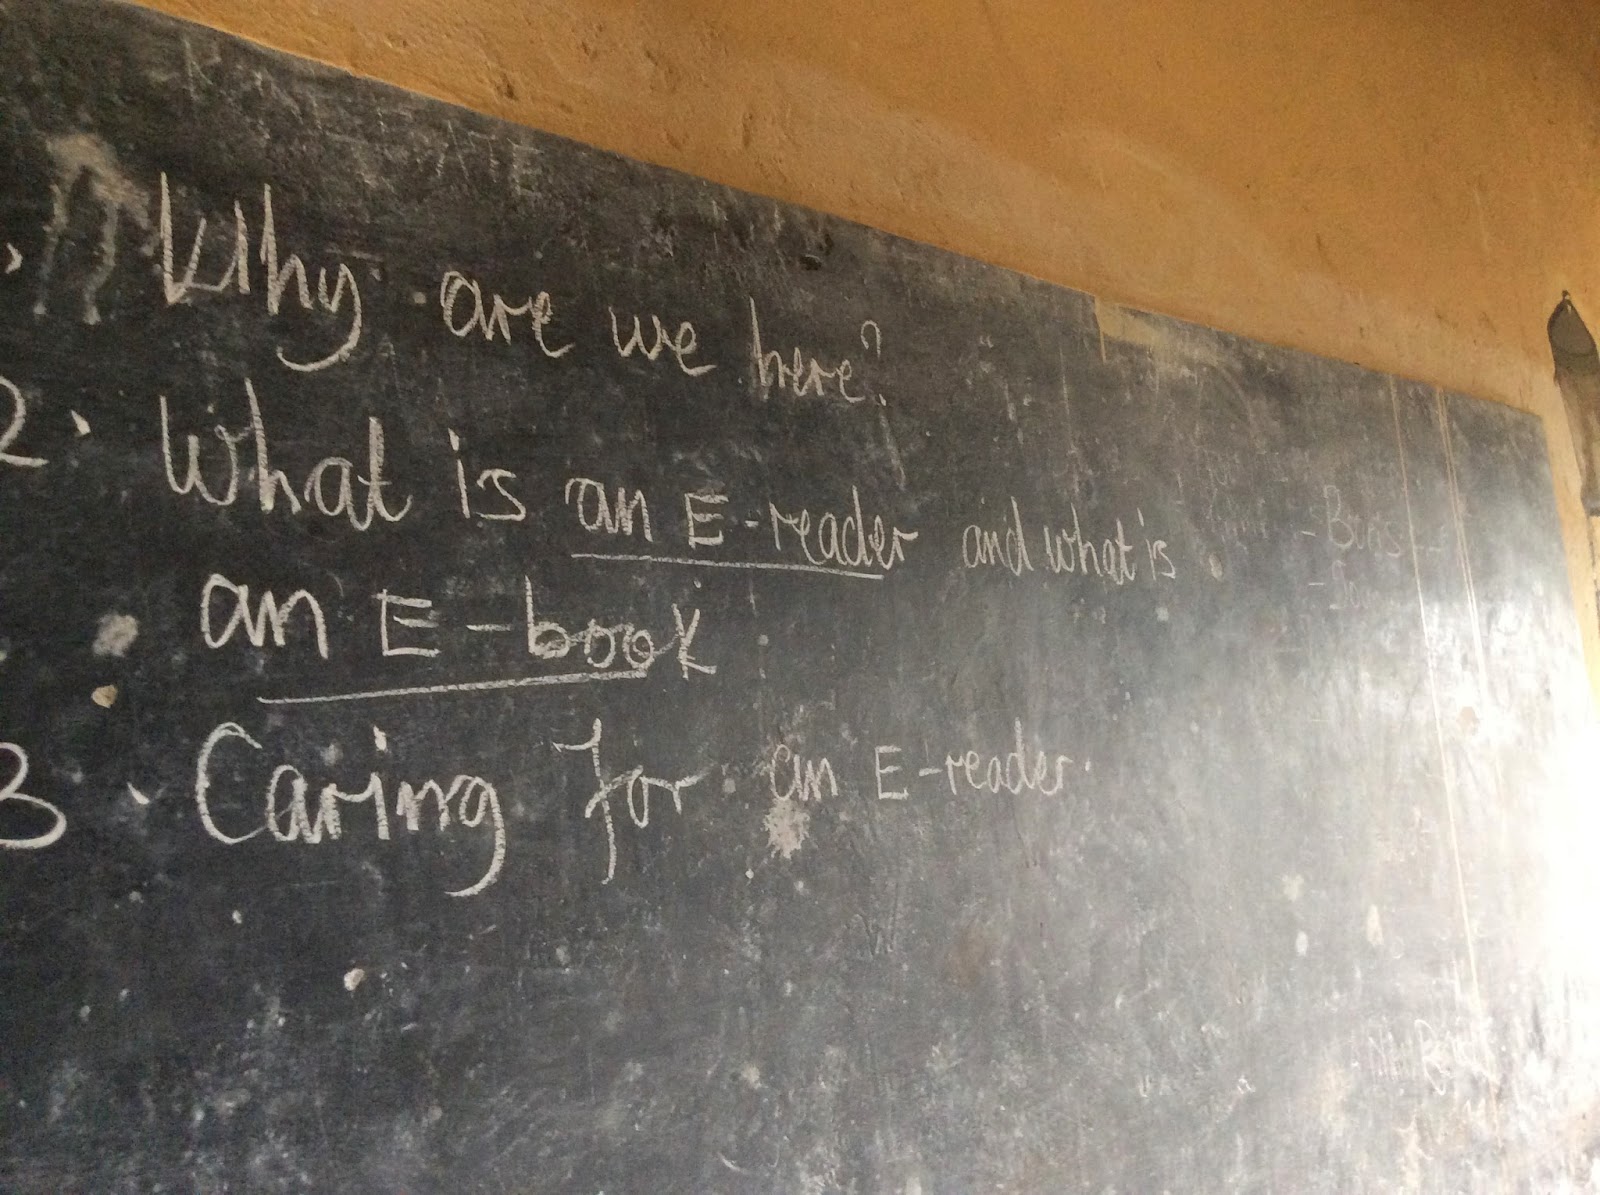 Why are we here?
2. What is an E-reader and what is
an E-book
3. Caring for an E-reader.